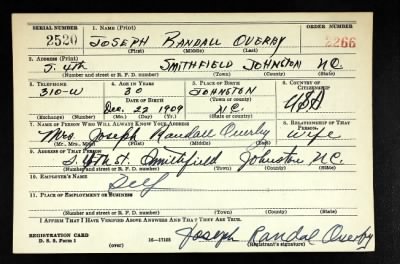 SERIAL NUMBER 1. NAME (Print) ORDER NUMBER
2520 JOSEPH RANDALL OVERBY 2266
(First) (Middle) (Last)
2. ADDRESS (Print)
S. 4TH SMITHFIELD JOHNSTON N.C.
(Number and street or R. F. D. number) (Town) (County) (State)
3. TELEPHONE 4. AGE IN YEARS 5. PLACE OF BIRTH 6. COUNTRY OF CITIZENSHIP
310-W 30 JOHNSTON USA
DATE OF BIRTH (Town or county)
Dec. 22 1909 N.C.
(Exchange) (Number) (Mo.) (Day) (Yr.) (State or country)
7. NAME OF PERSON WHO WILL ALWAYS KNOW YOUR ADDRESS 8. RELATIONSHIP OF THAT PERSON
Mrs. Joseph Randall Overby Wife
(Mr., Mrs., Miss) (First) (Middle) (Last)
9. ADDRESS OF THAT PERSON
S. 4th St. Smithfield Johnston N.C.
(Number and street or R. F. D. number) (Town) (County) (State)
10. EMPLOYER'S NAME
Self
11. PLACE OF EMPLOYMENT OR BUSINESS
(Number and street or R. F. D. number) (Town) (County) (State)
I AFFIRM THAT I HAVE VERIFIED ABOVE ANSWERS AND THAT THEY ARE TRUE.
REGISTRATION CARD
D. S. S. Form 1 (over) 16—17105
Joseph Randal Overby
(Registrant's signature)